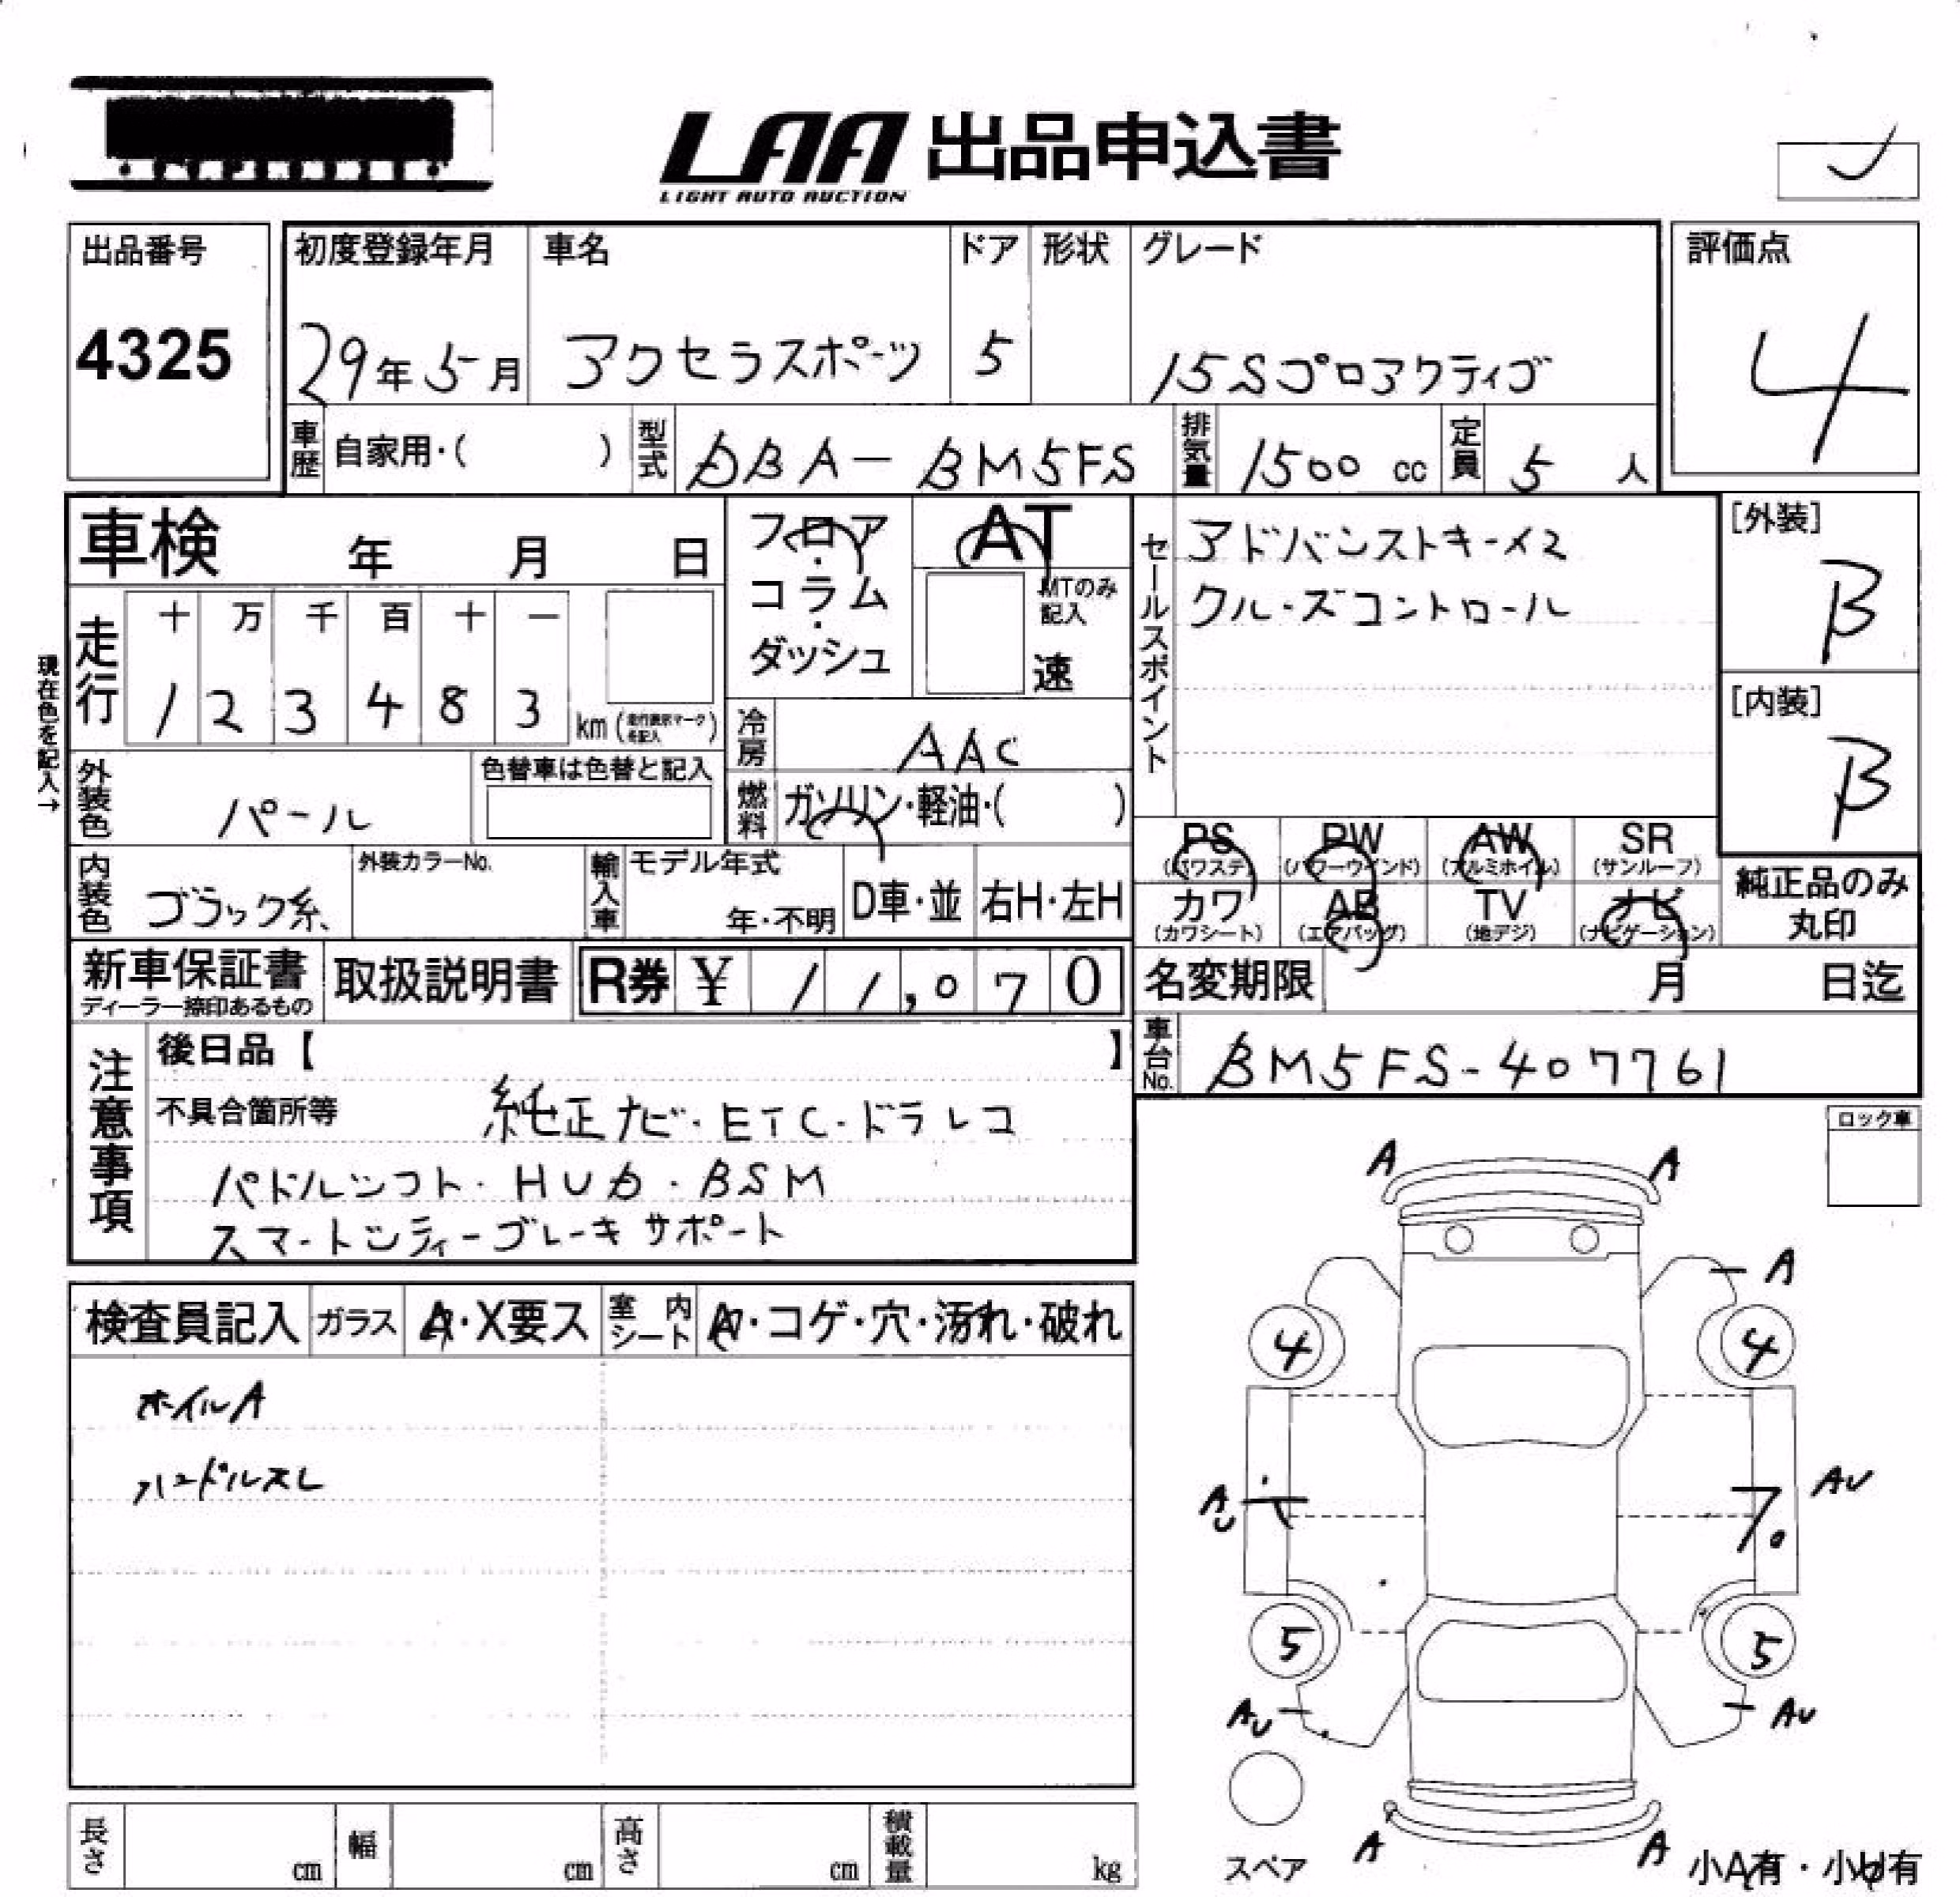 LAA 出品申込書
LIGHT AUTO AUCTION
出品番号
4325
初度登録年月
29年5月
車名
アクセラスポーツ
ドア
5
形状
グレード
15Sプロアクティブ
評価点
4
車歴 自家用・( )
型式 DBA-BM5FS
排気量 1500 cc
定員 5 人
車検 年 月 日
フロア・コラム・ダッシュ
AT
MTのみ記入
速
セールスポイント
アドバンストキー×2
クルーズコントロール
[外装]
B
[内装]
B
現在色を記入→
走行
十 万 千 百 十 一
1 2 3 4 8 3 km (走行表示マークを記入)
冷房 AAC
外装色 パール
色替車は色替と記入
燃料 ガソリン・軽油・( )
PS (パワステ) PW (パワーウインド) AW (アルミホイル) SR (サンルーフ)
カワ (カワシート) AB (エアバッグ) TV (地デジ) ナビ (ナビゲーション)
純正品のみ丸印
内装色 ブラック系
外装カラーNo.
輸入車 モデル年式 年・不明
D車・並 右H・左H
新車保証書
ディーラー捺印あるもの
取扱説明書
R券 ¥ 11,070
名変期限 月 日迄
車台No. BM5FS-407761
注意事項
後日品【 】
不具合箇所等 純正ナビ・ETC・ドラレコ
パドルシフト・HUD・BSM
スマートシティーブレーキサポート
ロック車
検査員記入 ガラス A・X要ス 室内シート A・コゲ・穴・汚れ・破れ
ホイルA
ハンドルスレ
A A
A
4 4
AU AU
5 5
AU AU
スペア
A A
小A有・小U有
長さ cm 幅 cm 高さ cm 積載量 kg